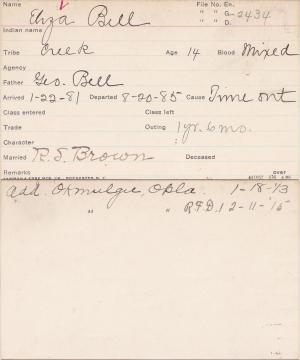 Name File No. En.
Eliza Bell " " G- 2434
Indian name " " D.
Tribe Creek Age 14 Blood Mixed
Agency
Father Geo. Bell
Arrived 1-22-81 Departed 8-20-85 Cause Time out
Class entered Class left
Trade Outing 1 yr. 6 mo.
Character
Married R. S. Brown Deceased
Remarks over
Add. Okmulgee, Okla. 1-18-13
" " R.F.D. 1 2-11-'15